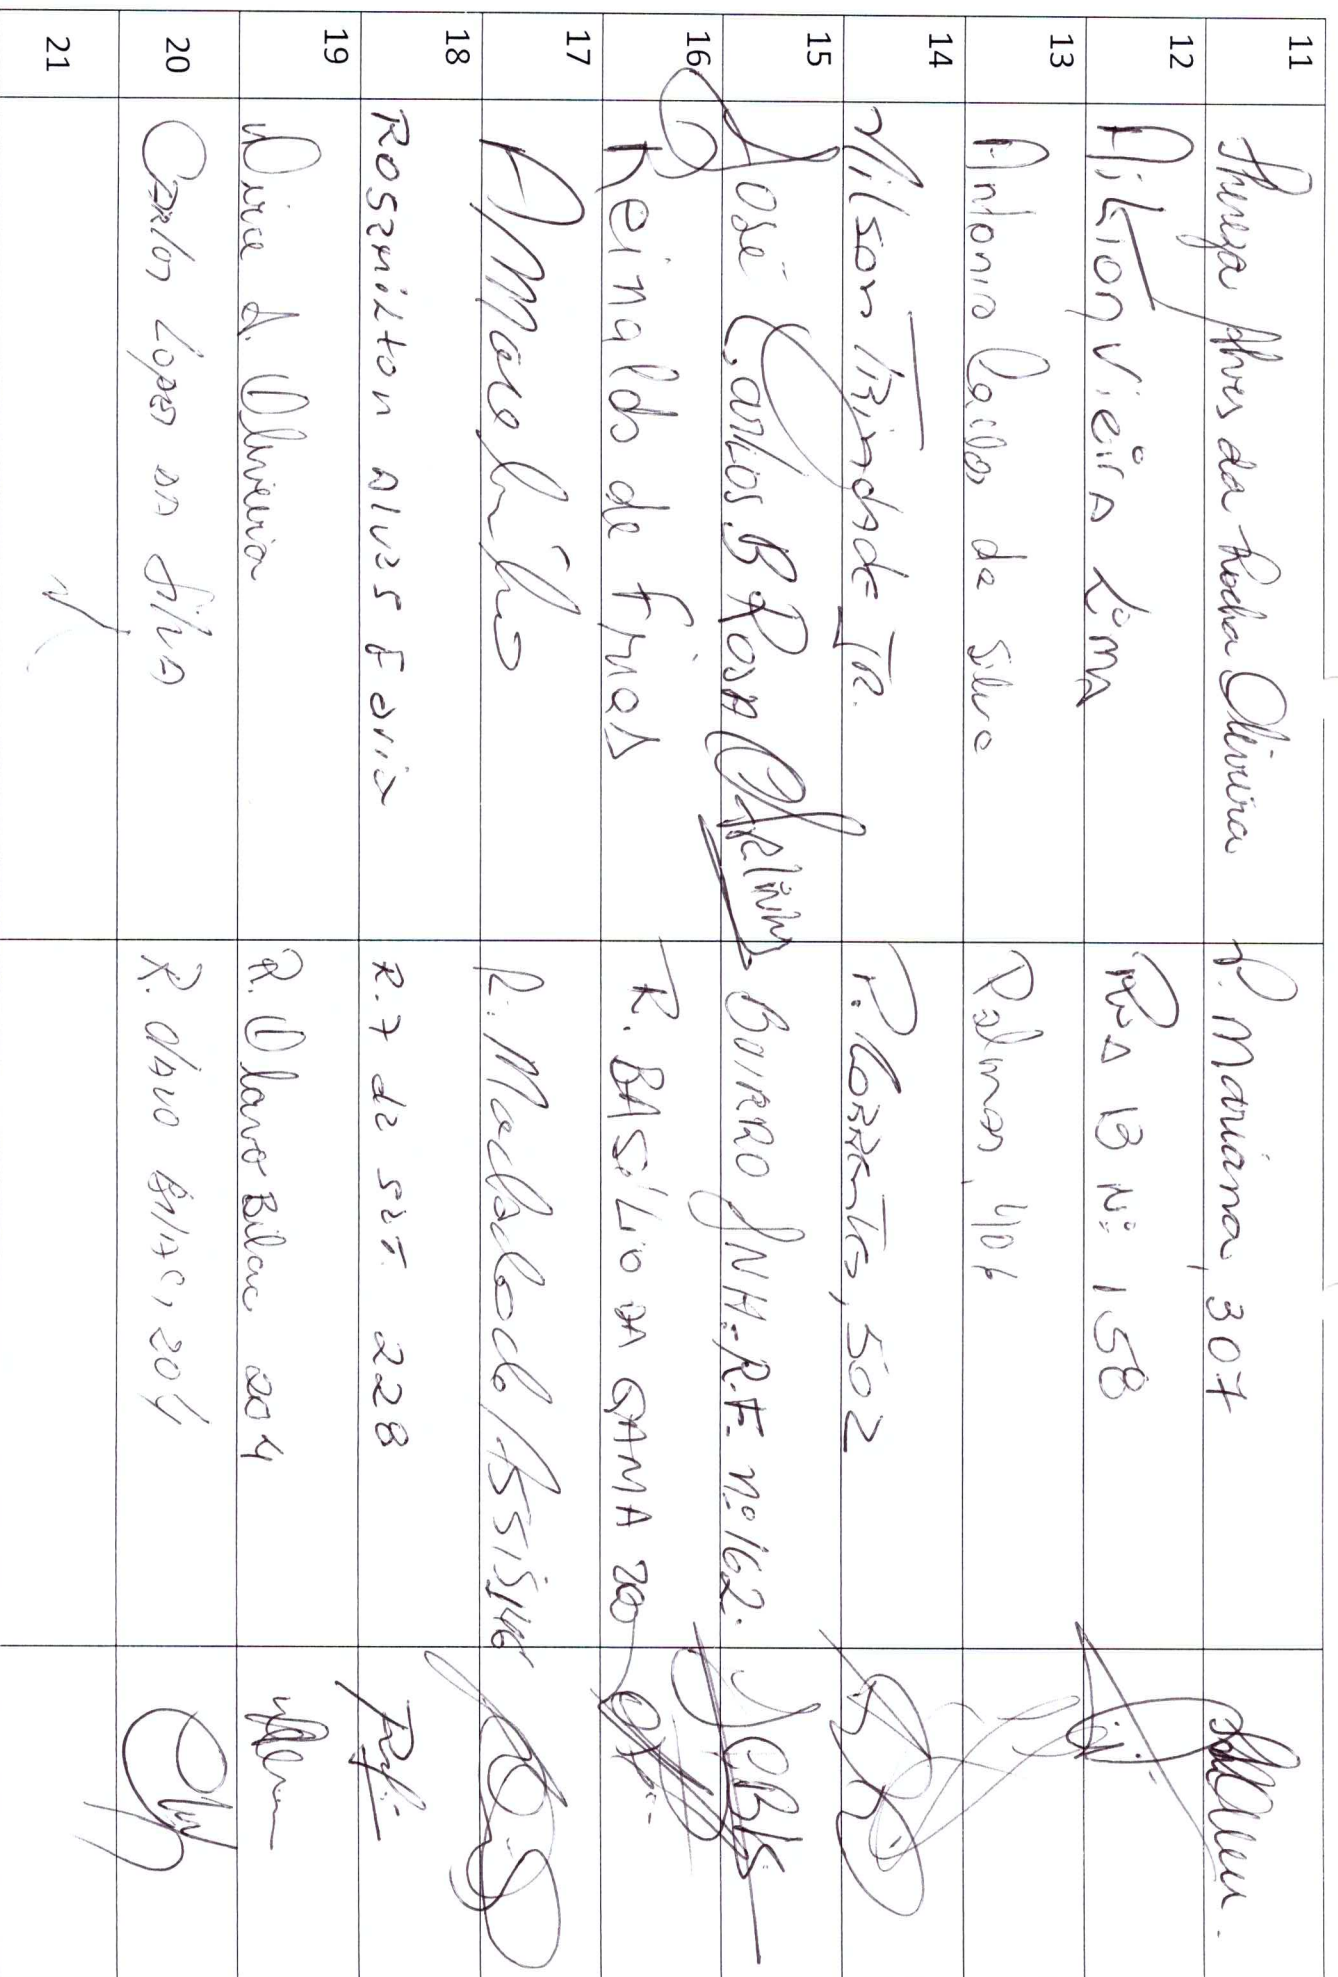 11 Thereza Alves da Rocha Oliveira R. Mariana, 307
12 Ailton Vieira Lima Rua 13 Nº 158
13 Antonio Carlos da Silva Palmas, 406
14 Nilson Trindade JR. R. Correntes, 502
15 José Carlos B Rosa Carlinhos Bairro JNH. R.F. nº 162.
16 Reinaldo de Frias R. BASÍLIO DA GAMA 200
17 R. Machado Assis 146
18 Rosamilton Alves Faria R. 7 de set. 228
19 Dirce A. Oliveira R. Olavo Bilac 204
20 Carlos Lopes da Silva R. Olavo Bilac, 204
21